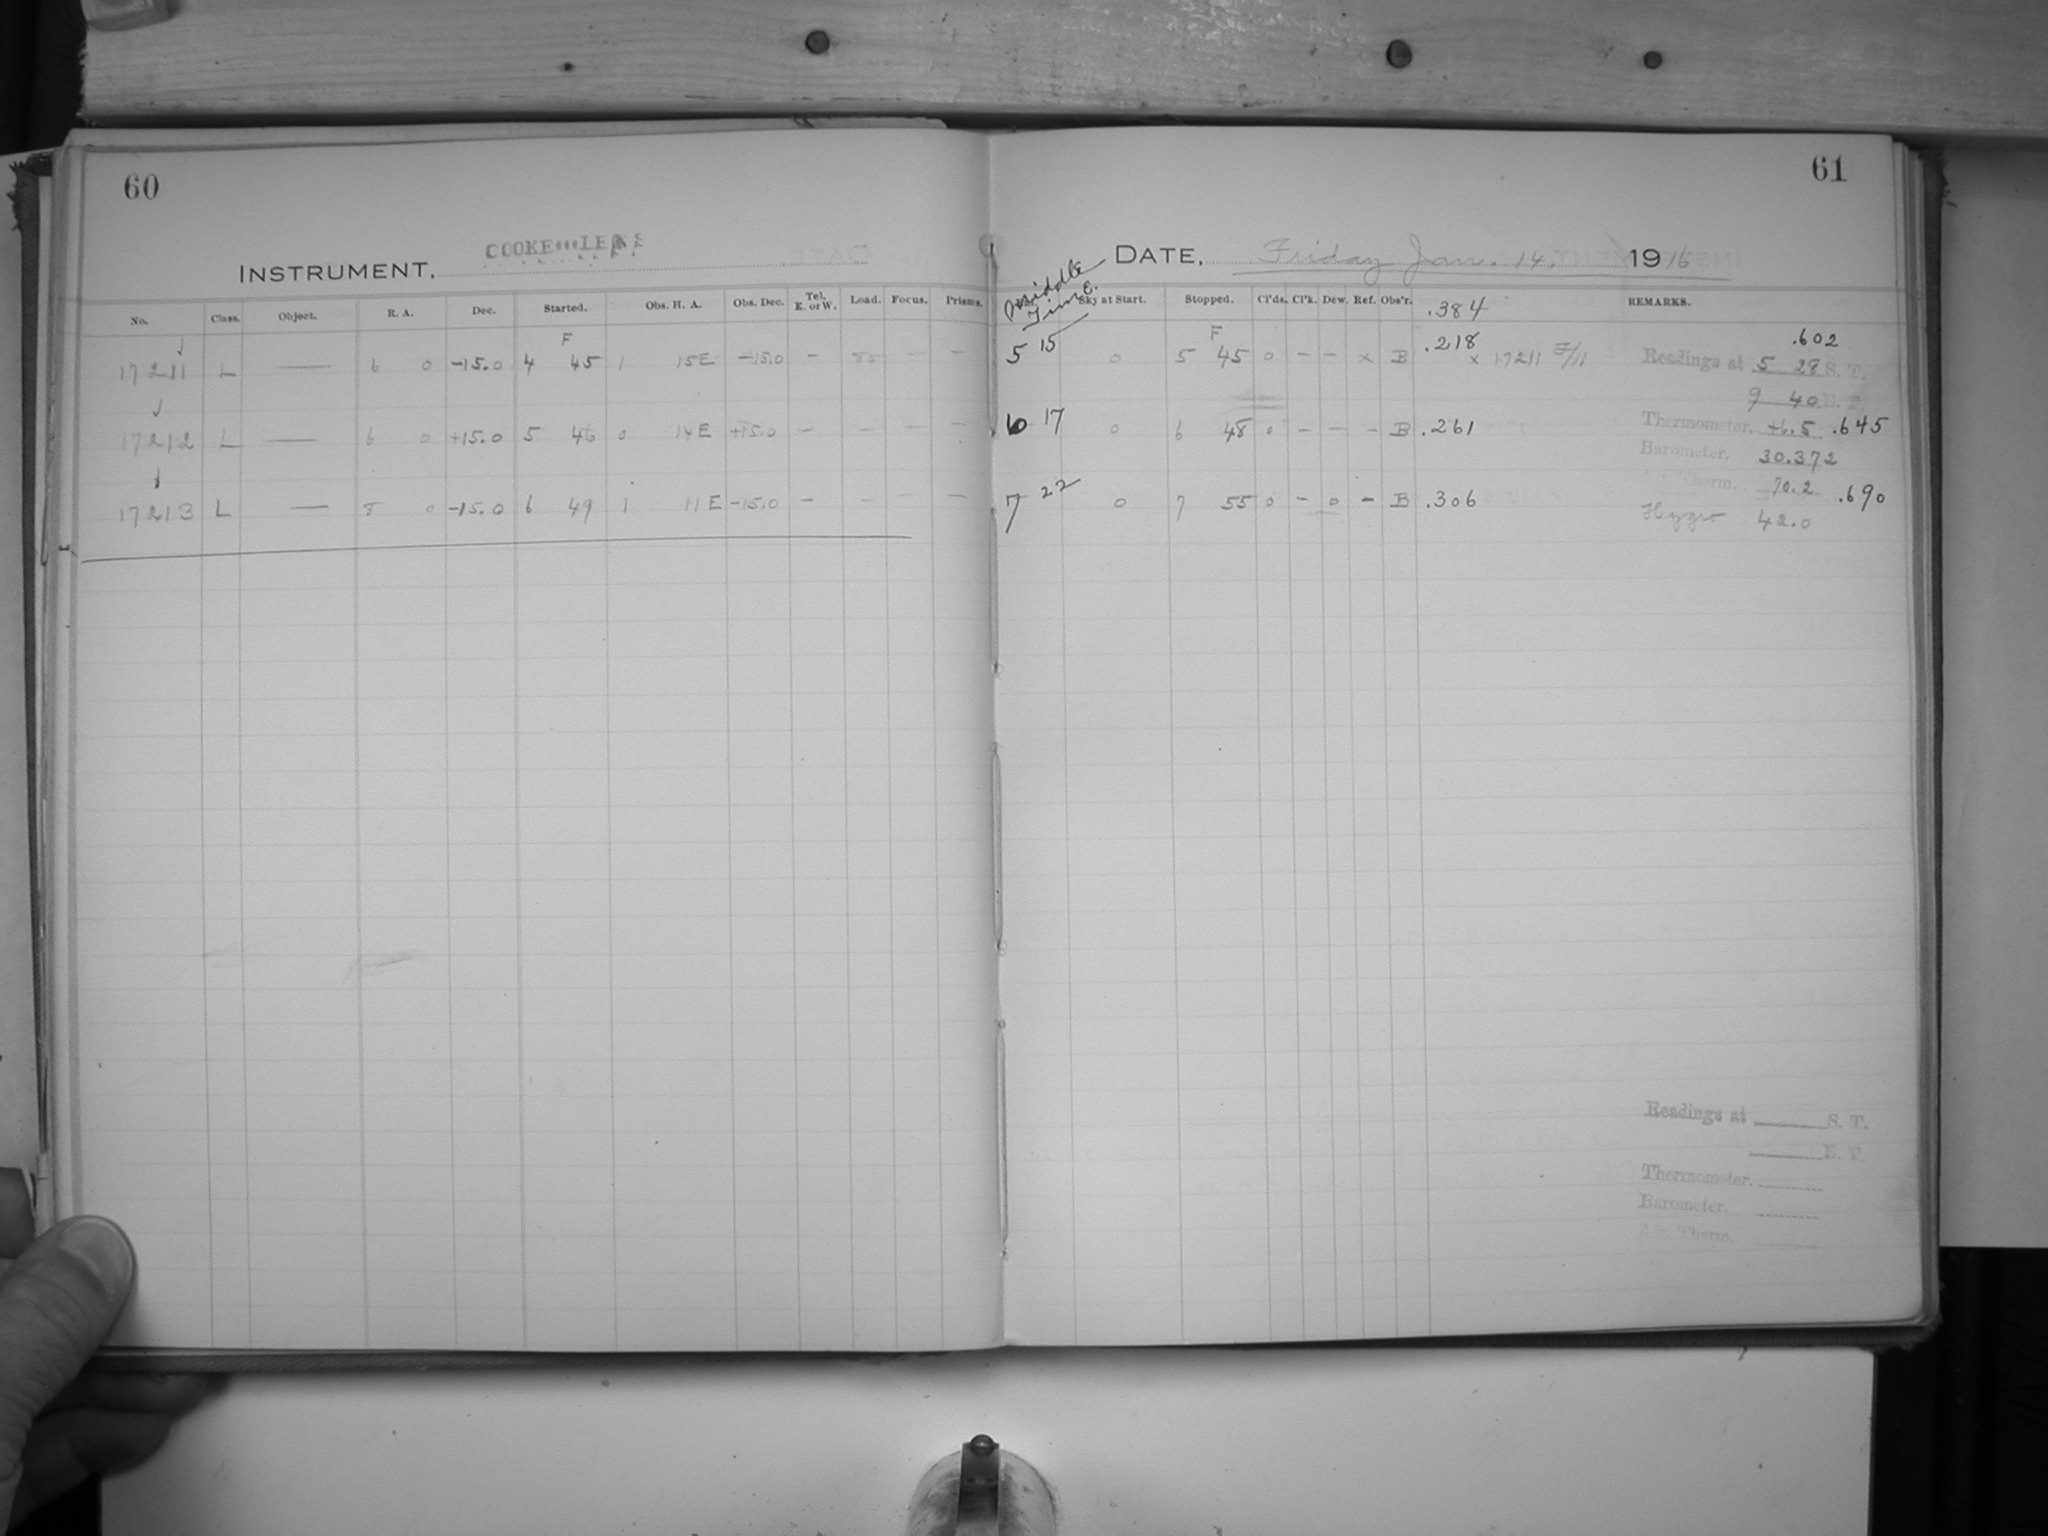 60
INSTRUMENT. COOKE LENS
No. Class. Object. R. A. Dec. Started. Obs. H. A. Obs. Dec. Tel. E. or W. Load. Focus. Prisms.
F
17211 L — 6 0 -15.0 4 45 1 15E -15.0 - - -
17212 L — 6 0 +15.0 5 46 0 14E +15.0 - - - -
17213 L — 8 0 -15.0 6 49 1 11E -15.0 - - - -
61
DATE. Friday Jan. 14. 1916
Middle Time Sky at Start. Stopped. Cl'ds. Cl'k. Dew. Ref. Obs'r. .384 REMARKS.
F
5 15 0 5 45 0 - - x B .218 x 17211 .602
Readings at 5 28 S. T.
9 40 E. T.
6 17 0 6 48 0 - - - B .261 Thermometer. +6.5 .645
Barometer. 30.372
Att. Therm. 70.2 .690
7 22 0 7 55 0 - 0 - B .306 Hygro 42.0
Readings at S. T.
E. T.
Thermometer.
Barometer.
Att. Therm.